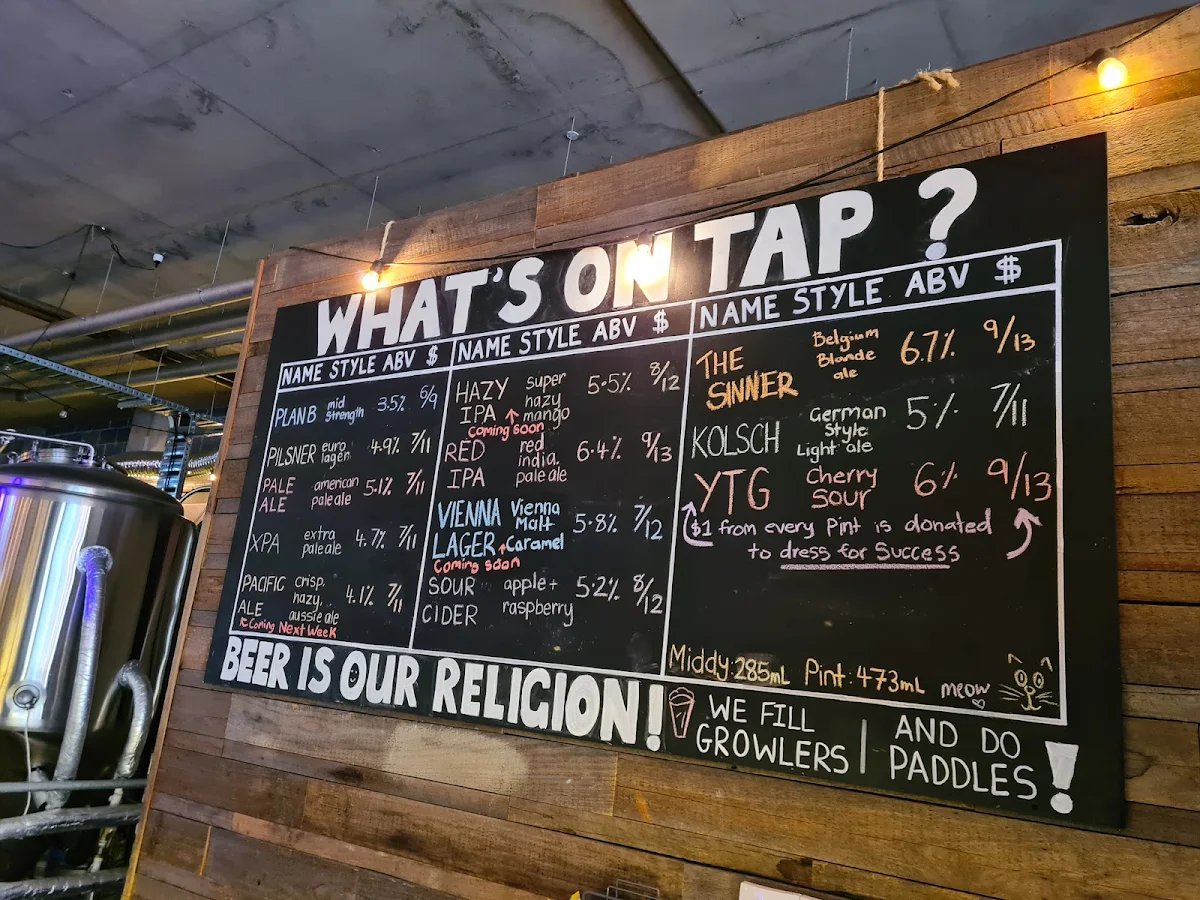 WHAT'S ON TAP ?
NAME STYLE ABV $
PLAN B mid strength 3.5% 6/9
PILSNER euro lager 4.9% 7/11
PALE ALE american pale ale 5.1% 7/11
XPA extra pale ale 4.7% 7/11
PACIFIC ALE crisp, hazy, aussie ale 4.1% 7/11
Coming Next Week
NAME STYLE ABV $
HAZY IPA super hazy mango 5.5% 8/12
Coming soon
RED IPA red india. pale ale 6.4% 9/13
VIENNA LAGER Vienna Malt Caramel 5.8% 7/12
Coming soon
SOUR CIDER apple + raspberry 5.2% 8/12
NAME STYLE ABV $
THE SINNER Belgium Blonde ale 6.7% 9/13
KOLSCH German Style Light ale 5% 7/11
YTG Cherry SOUR 6% 9/13
$1 from every Pint is donated
to dress for Success
Middy:285mL Pint:473mL meow
BEER IS OUR RELIGION!
WE FILL GROWLERS
AND DO PADDLES!